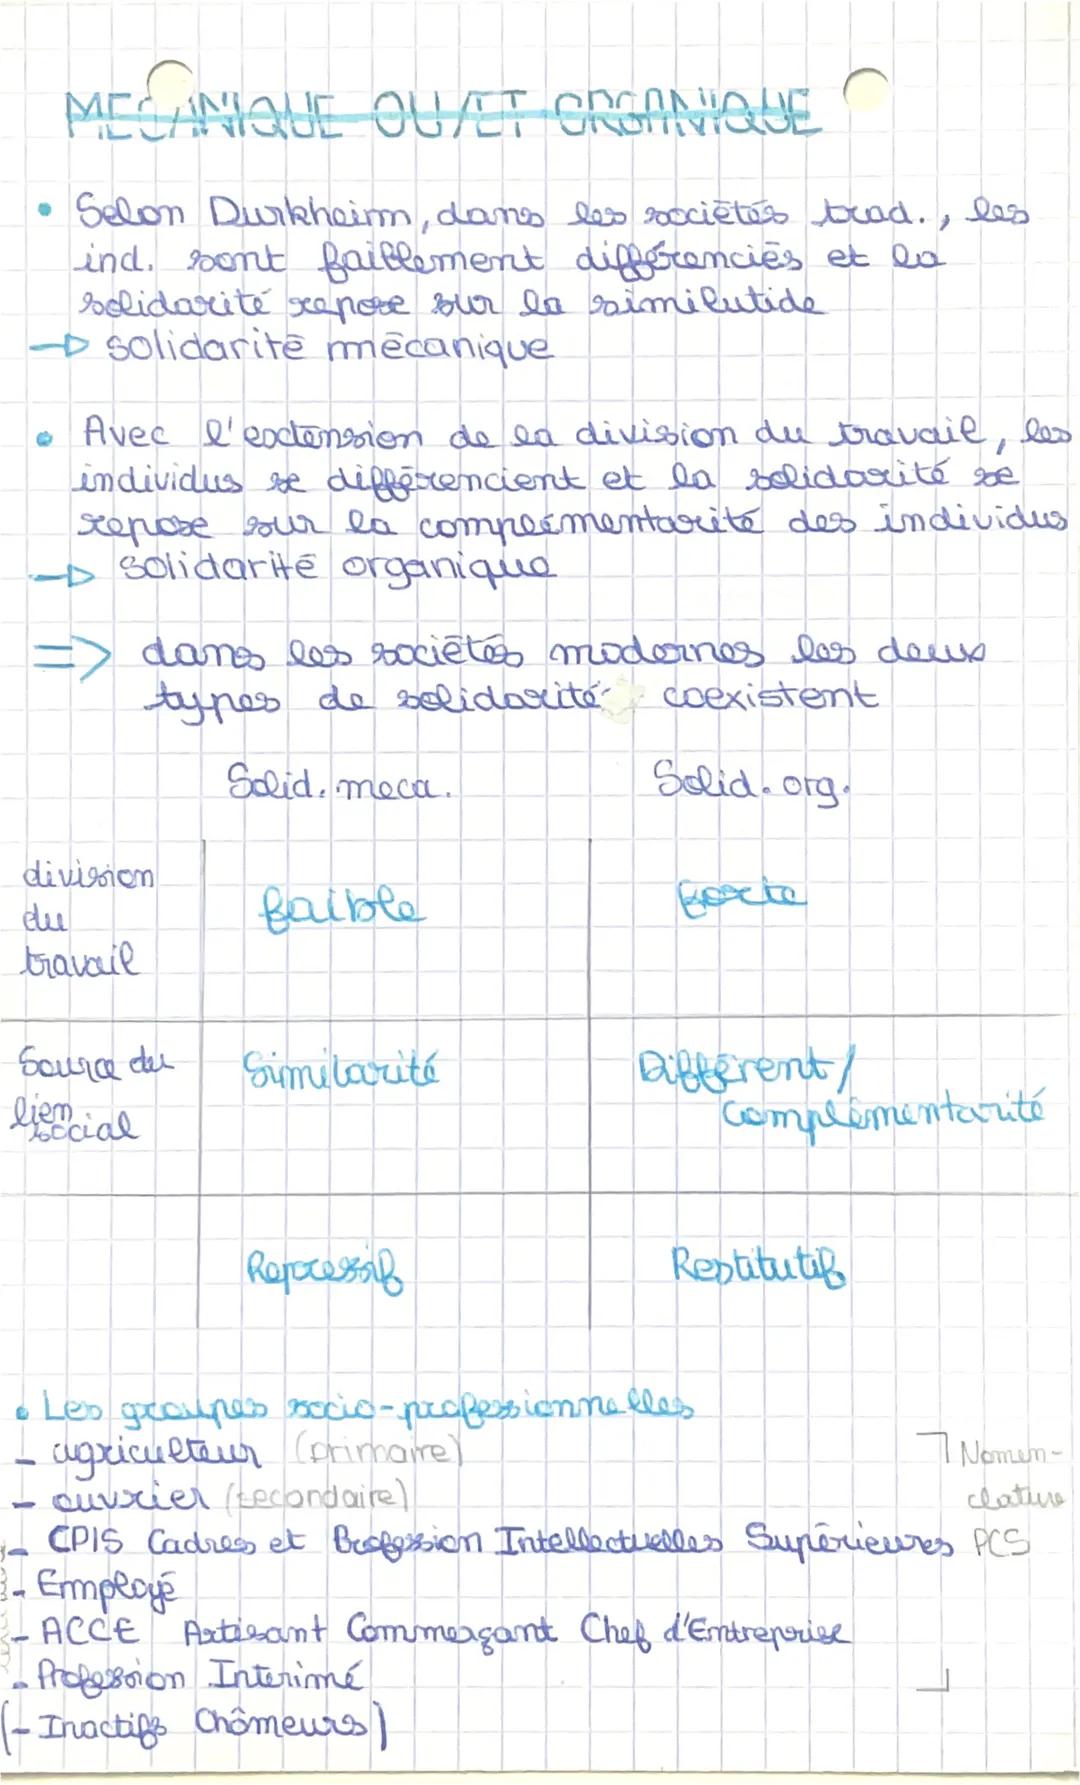 MECANIQUE OU/ET ORGANIQUE
• Selon Durkheim, dans les sociétés trad., les
ind. sont faiblement différenciés et la
solidarité repose sur la similutide
→ solidarité mécanique
• Avec l'extension de la division du travail, les
individus se différencient et la solidarité se
repose sur la complémentarité des individus
→ solidarité organique
=> dans les sociétés modernes les deux
types de solidarité coexistent
Solid. meca. Solid. org.
division
du
travail
faible forte
Source du
lien
social
Similarité Différent/
complémentarité
Repressif Restitutif
• Les groupes socio-professionnelles
- agriculteur (primaire)
- ouvrier (secondaire)
- CPIS Cadres et Profession Intellectuelles Supérieures
Nomen-
clature
PCS
- Employé
- ACCE Artisant Commerçant Chef d'Entreprise
- Profession Interimé
(- Inactifs Chômeurs)